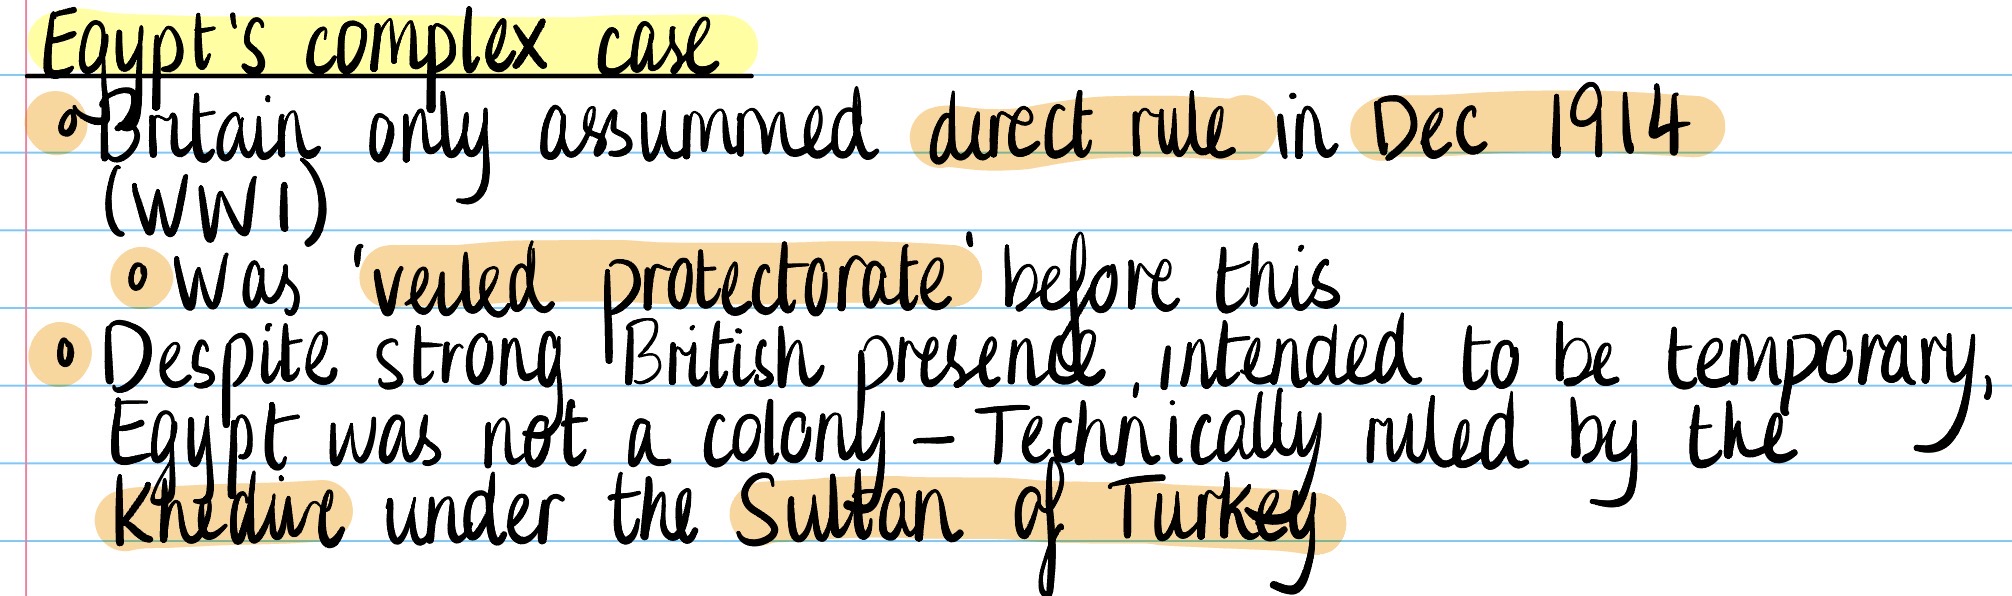 Egypt's complex case
Britain only assummed direct rule in Dec 1914
(WW1)
Was 'veiled protectorate' before this
Despite strong British presence, intended to be temporary,
Egypt was not a colony – Technically ruled by the
Khedive under the Sultan of Turkey